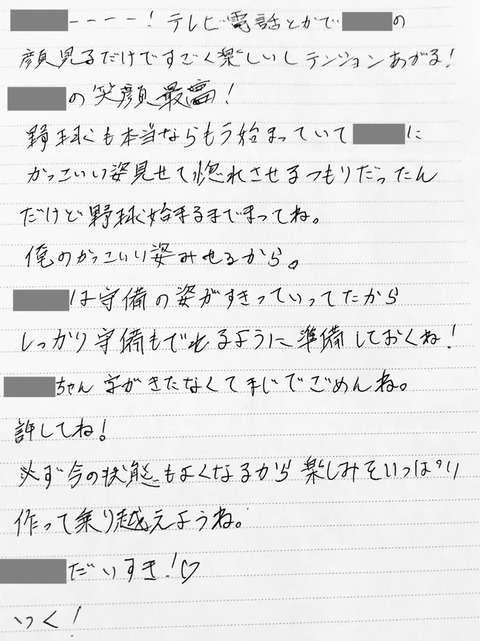 ーーーー!テレビ電話とかでの
顔見るだけですごく楽しいしテンションあがる!
の笑顔最高!
野球も本当ならもう始まっていてに
かっこいい姿見せて惚れさせるつもりだったん
だけど野球始まるまでまってね。
俺のかっこいい姿みせるから。
は守備の姿がすきっていってたから
しっかり守備もでれるように準備しておくね!
ちゃん字がきたなくてまじでごめんね。
許してね!
必ず今の状態もよくなるから楽しみをいっぱい
作って乗り越えようね。
だいすき!♡
いく!